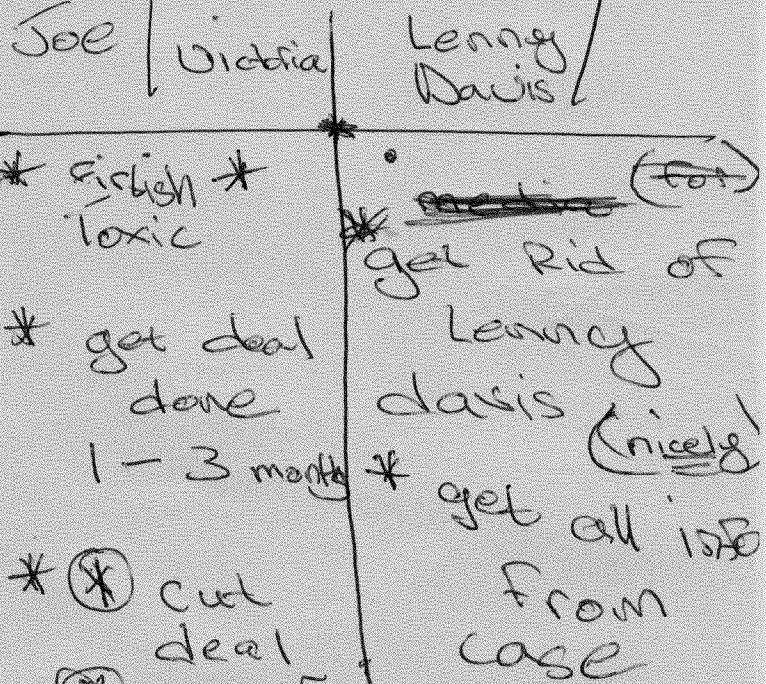 Joe / Victoria
* Firtish *
Toxic
* get deal
done
1 - 3 months
* * cut
deal
Lenny
Davis /
• media (for)
* get Rid of
Lenny
davis
(nicely)
* get all info
From
case